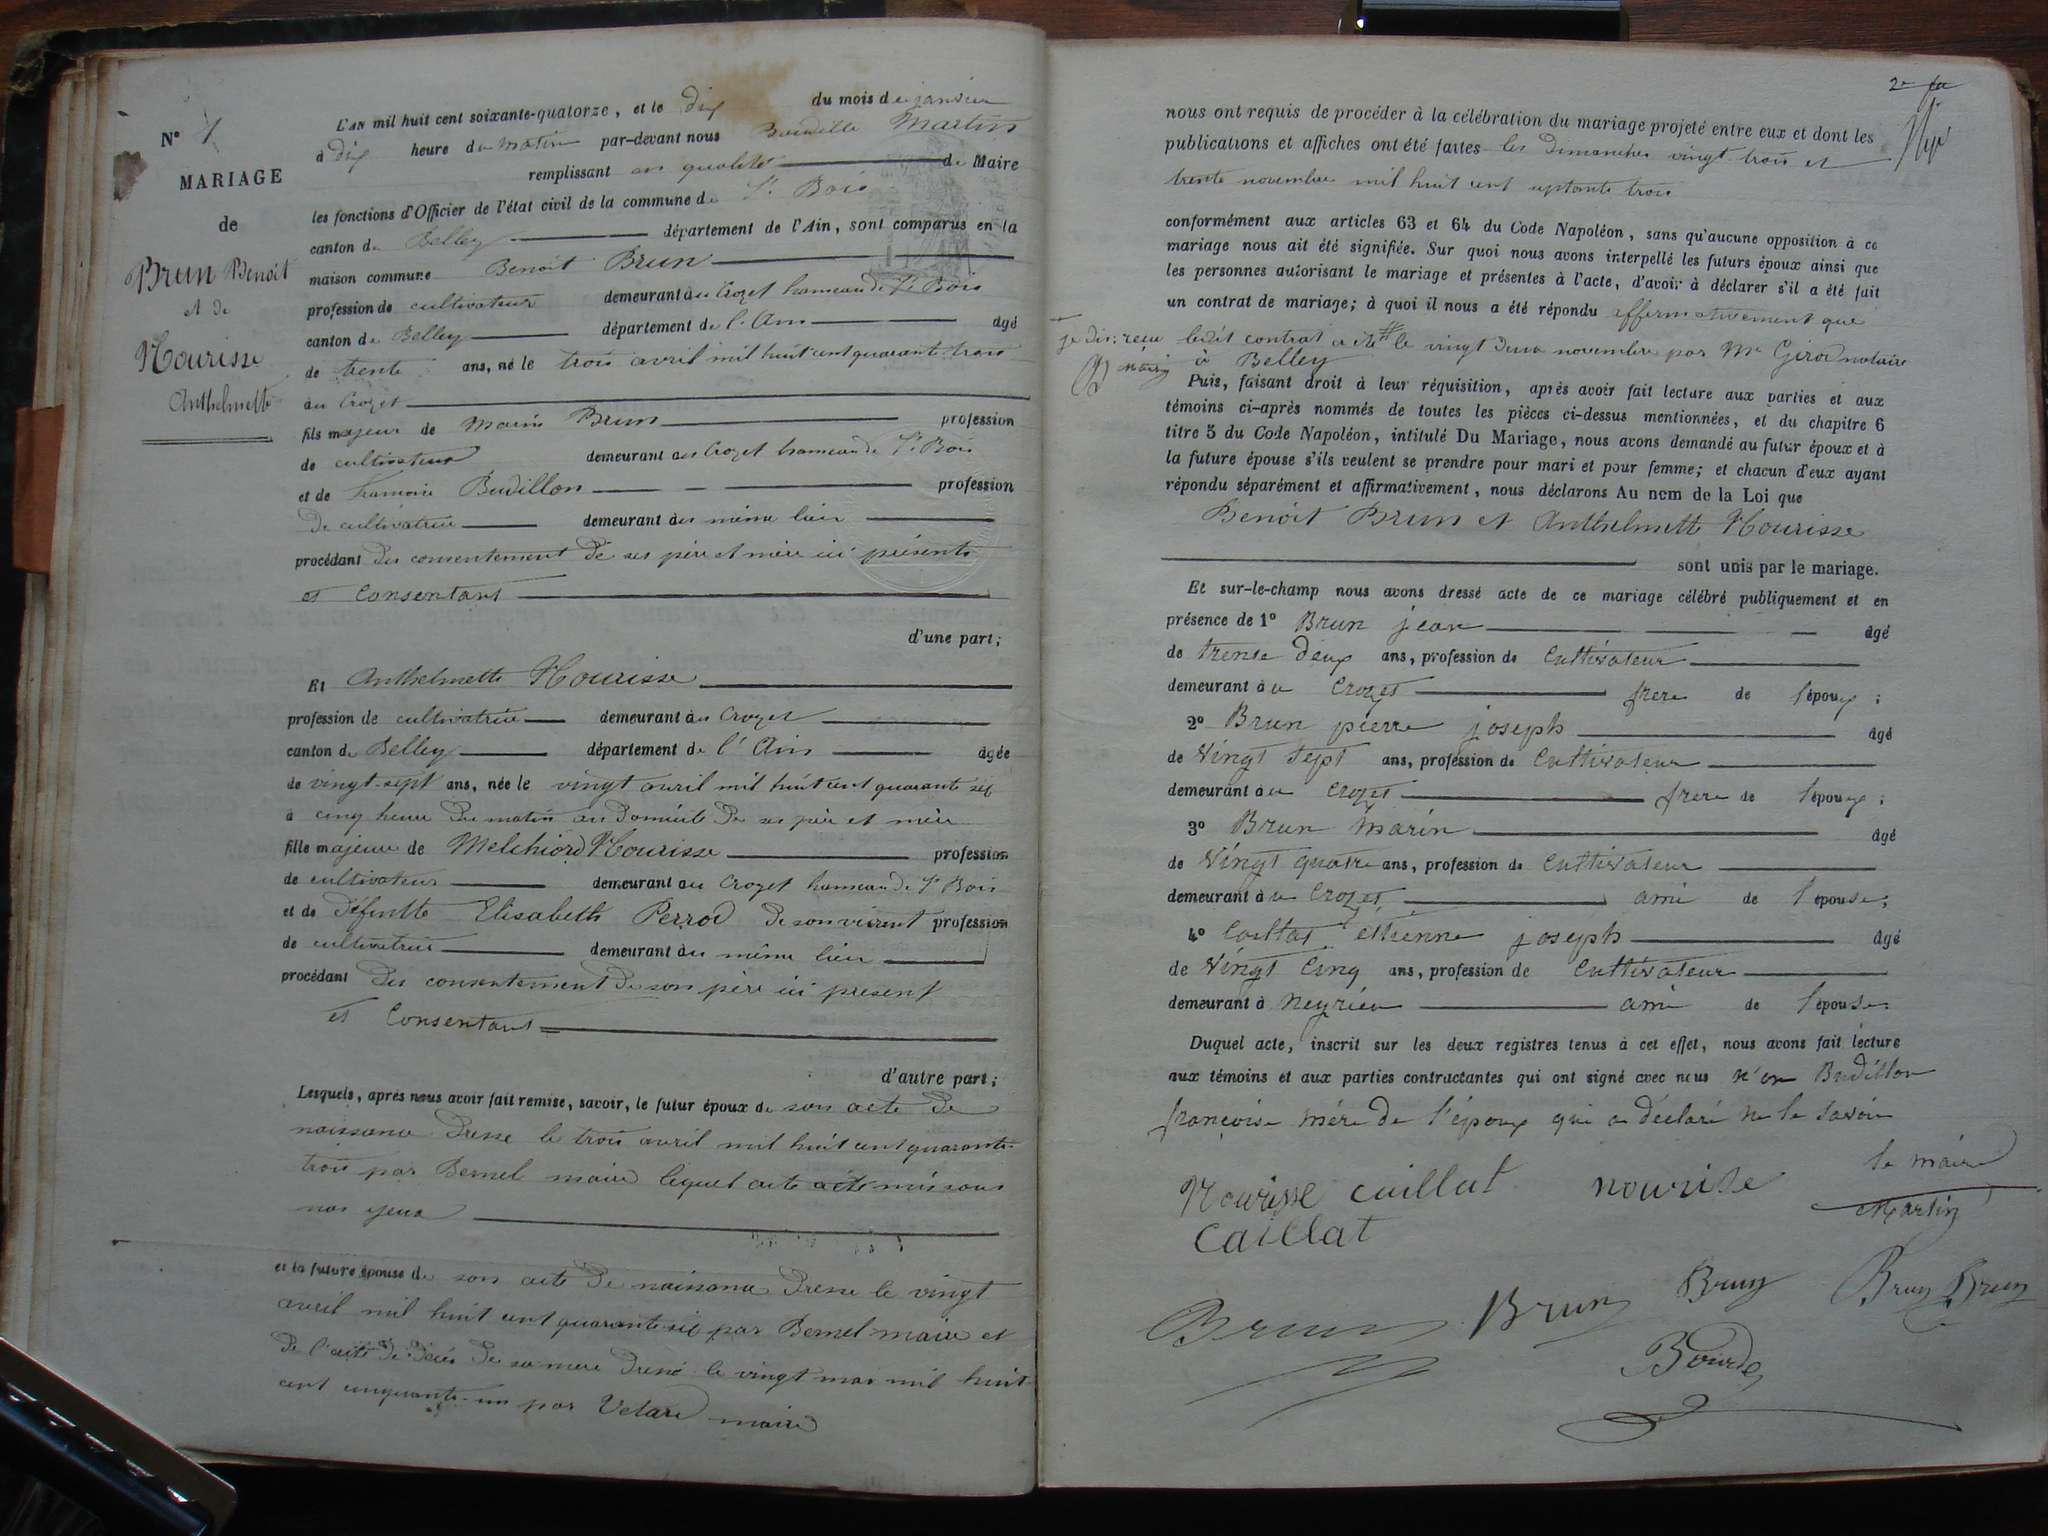 N° 1
MARIAGE
de
Brun Benoit
et de
Nourisse
Anthelmette
L'AN mil huit cent soixante-quatorze, et le dix du mois de janvier
à dix heure du matin par-devant nous Martin
remplissant en qualité de Maire
les fonctions d'Officier de l'état civil de la commune de St Bois
canton de Belley département de l'Ain, sont comparus en la
maison commune Benoit Brun
profession de cultivateur demeurant au Crozet hameau de St Bois
canton de Belley département de l'Ain âgé
de trente ans, né le trois avril mil huit cent quarante-trois
au Crozet
fils majeur de Marin Brun profession
de cultivateur demeurant au Crozet hameau de St Bois
et de Budillon profession
de cultivatrice demeurant au même lieu
procédant du consentement de ses père et mère ici présents
et Consentant
d'une part;
Et Anthelmette Nourisse
profession de cultivatrice demeurant au Crozet
canton de Belley département de l'Ain âgée
de vingt-sept ans, née le vingt avril mil huit cent quarante six
à cinq heure du matin au domicile de ses père et mère
fille majeure de Melchiord Nourisse profession
de cultivateur demeurant au Crozet hameau de St Bois
et de défuntte Elisabeth Perrod de son vivant profession
de cultivatrice demeurant au même lieu
procédant du consentement de son père ici présent
et Consentant
d'autre part;
Lesquels, après nous avoir fait remise, savoir, le futur époux de son acte de
naissance dressé le trois avril mil huit cent quarante-
trois par Bernel maire lequel acte a été mis sous
nos yeux
et la future épouse de son acte de naissance dressé le vingt
avril mil huit cent quarante-six par Bernel maire et
de l'acte de décès de sa mère dressé le vingt mai mil huit
cent cinquante-un par Velard maire
2e
nous ont requis de procéder à la célébration du mariage projeté entre eux et dont les
publications et affiches ont été faites les dimanches vingt-trois et
trente novembre mil huit cent septante trois
conformément aux articles 63 et 64 du Code Napoléon, sans qu'aucune opposition à ce
mariage nous ait été signifiée. Sur quoi nous avons interpellé les futurs époux ainsi que
les personnes autorisant le mariage et présentes à l'acte, d'avoir à déclarer s'il a été fait
un contrat de mariage; à quoi il nous a été répondu affirmativement que
je dis: reçu ledit contrat a été le vingt deux novembre par Me Girod notaire
à Belley
Puis, faisant droit à leur réquisition, après avoir fait lecture aux parties et aux
témoins ci-après nommés de toutes les pièces ci-dessus mentionnées, et du chapitre 6
titre 5 du Code Napoléon, intitulé Du Mariage, nous avons demandé au futur époux et à
la future épouse s'ils veulent se prendre pour mari et pour femme; et chacun d'eux ayant
répondu séparément et affirmativement, nous déclarons Au nom de la Loi que
Benoit Brun et Anthelmette Nourisse
sont unis par le mariage.
Et sur-le-champ nous avons dressé acte de ce mariage célébré publiquement et en
présence de 1° Brun jean âgé
de trente deux ans, profession de Cultivateur
demeurant à u Crozet frere de l'époux;
2° Brun pierre joseph âgé
de Vingt Sept ans, profession de Cultivateur
demeurant à u Crozet frere de l'époux;
3° Brun Marin âgé
de Vingt quatre ans, profession de Cultivateur
demeurant à u Crozet ami de l'épouse;
4° étienne joseph âgé
de Vingt Cinq ans, profession de Cultivateur
demeurant à Neyrieu ami de l'épouse.
Duquel acte, inscrit sur les deux registres tenus à cet effet, nous avons fait lecture
aux témoins et aux parties contractantes qui ont signé avec nous n'on Budillon
françoise mère de l'époux qui a déclaré ne le savoir
le maire
Nourisse caillat nourise Martin
Caillat
Brun Brun Brun Brun Brun
Bourde